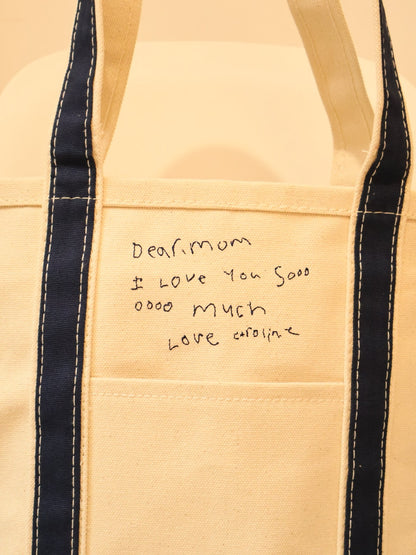 Dear, mom
I Love You Sooo
oooo much
Love caroline